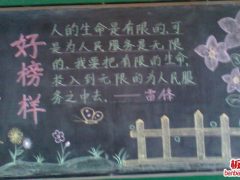 好榜样
人的生命是有限的,可
是为人民服务是无限
的,我要把有限的生命,
投入到无限的为人民服
务之中去。——雷锋